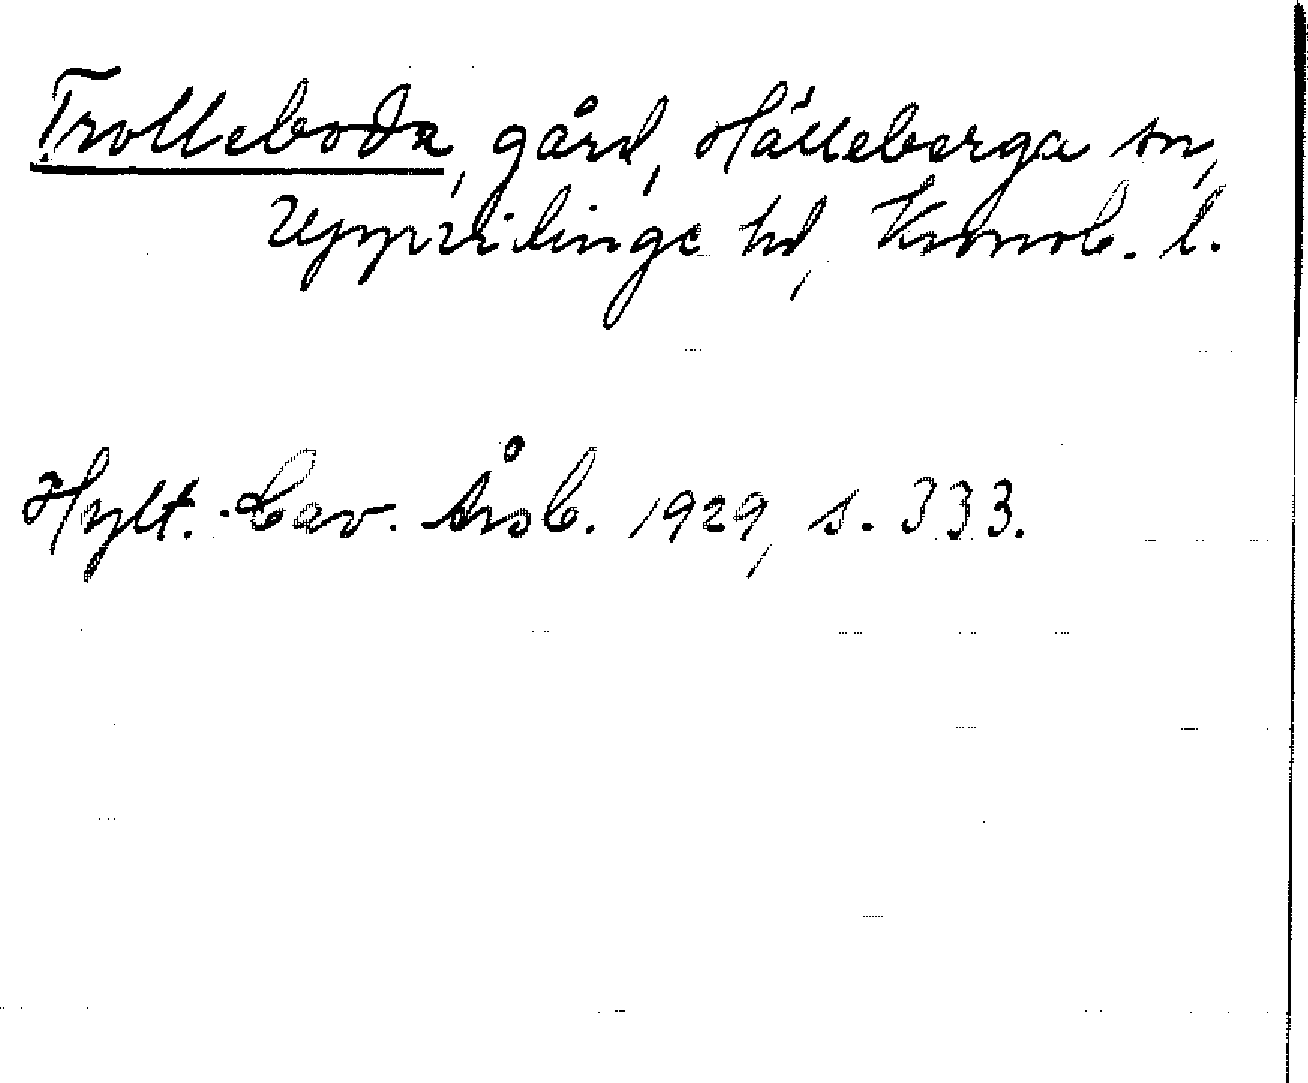 Trolleboda, gård, Hälleberga sn,
Uppvidinge hd, Kronob. l.
Hylt.-Cav. Årsb. 1929, s. 333.